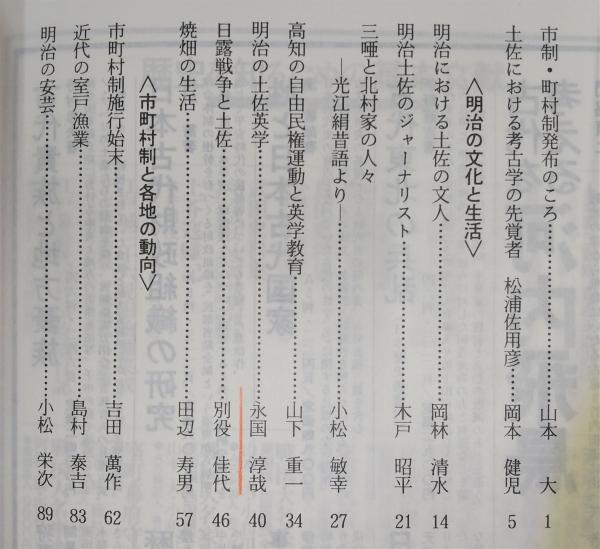 市制・町村制発布のころ……………………山本 大 1
土佐における考古学の先覚者 松浦佐用彦……岡本 健児 5
〈明治の文化と生活〉
明治における土佐の文人……………………岡林 清水 14
明治土佐のジャーナリスト…………………木戸 昭平 21
三唖と北村家の人々
―光江絹昔語より―……………………小松 敏幸 27
高知の自由民権運動と英学教育……………山下 重一 34
明治の土佐英学………………………………永国 淳哉 40
日露戦争と土佐………………………………別役 佳代 46
焼畑の生活……………………………………田辺 寿男 57
〈市町村制と各地の動向〉
市町村制施行始末……………………………吉田 萬作 62
近代の室戸漁業………………………………島村 泰吉 83
明治の安芸……………………………………小松 栄次 89